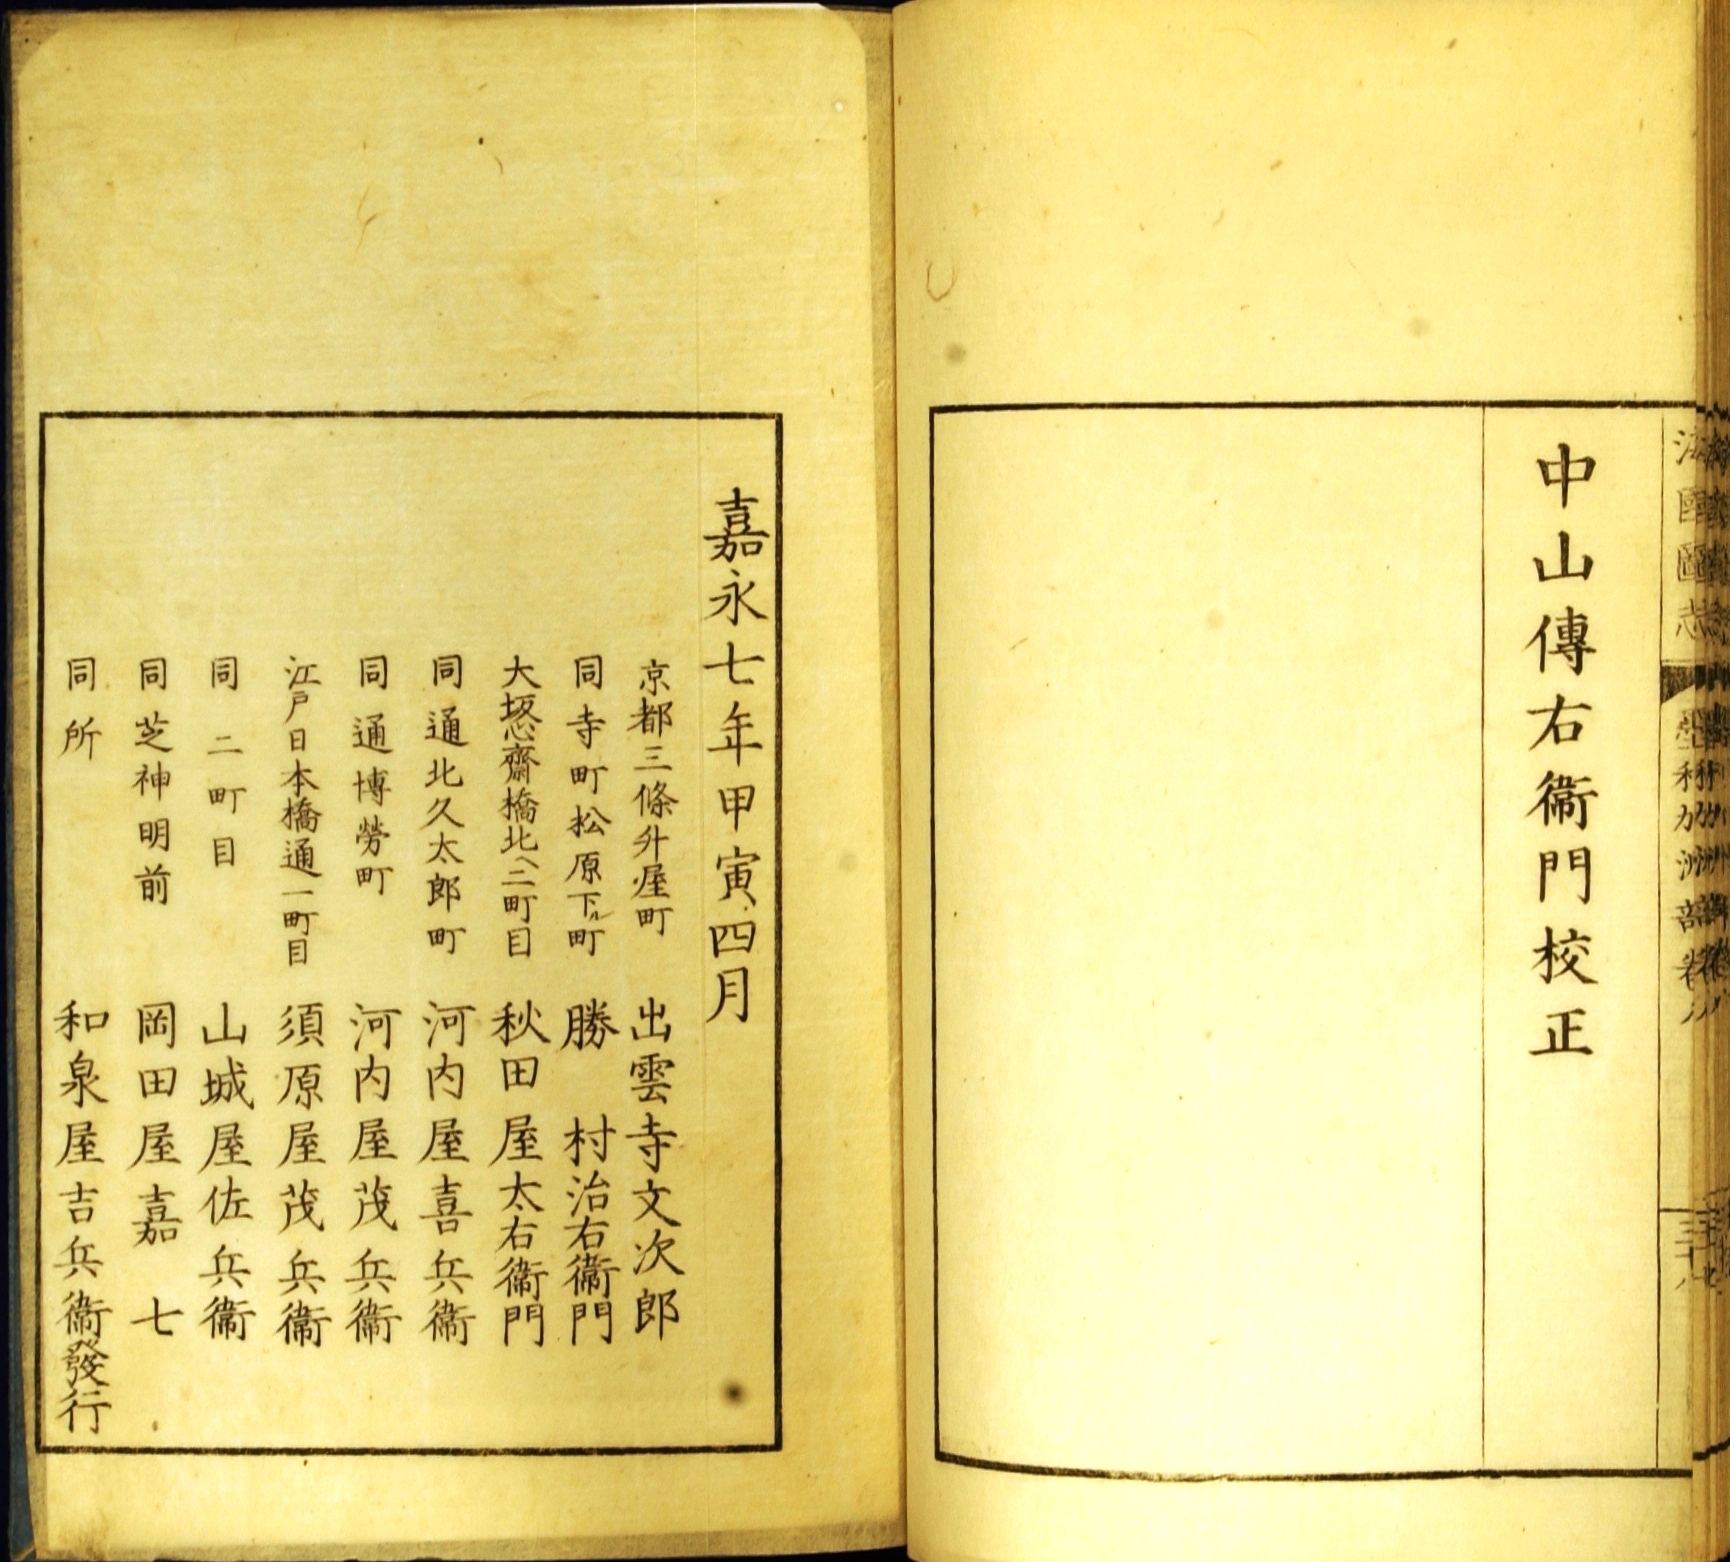 海國圖志 墨利加洲部卷八 三十八
中山傳右衛門校正
嘉永七年甲寅四月
京都三條升屋町 出雲寺文次郎
同寺町松原下ル町 勝村治右衛門
大坂心齋橋北ヘ二町目 秋田屋太右衛門
同通北久太郎町 河内屋喜兵衛
同通博勞町 河内屋茂兵衛
江戸日本橋通一町目 須原屋茂兵衛
同二町目 山城屋佐兵衛
同芝神明前 岡田屋嘉七
同所 和泉屋吉兵衛發行